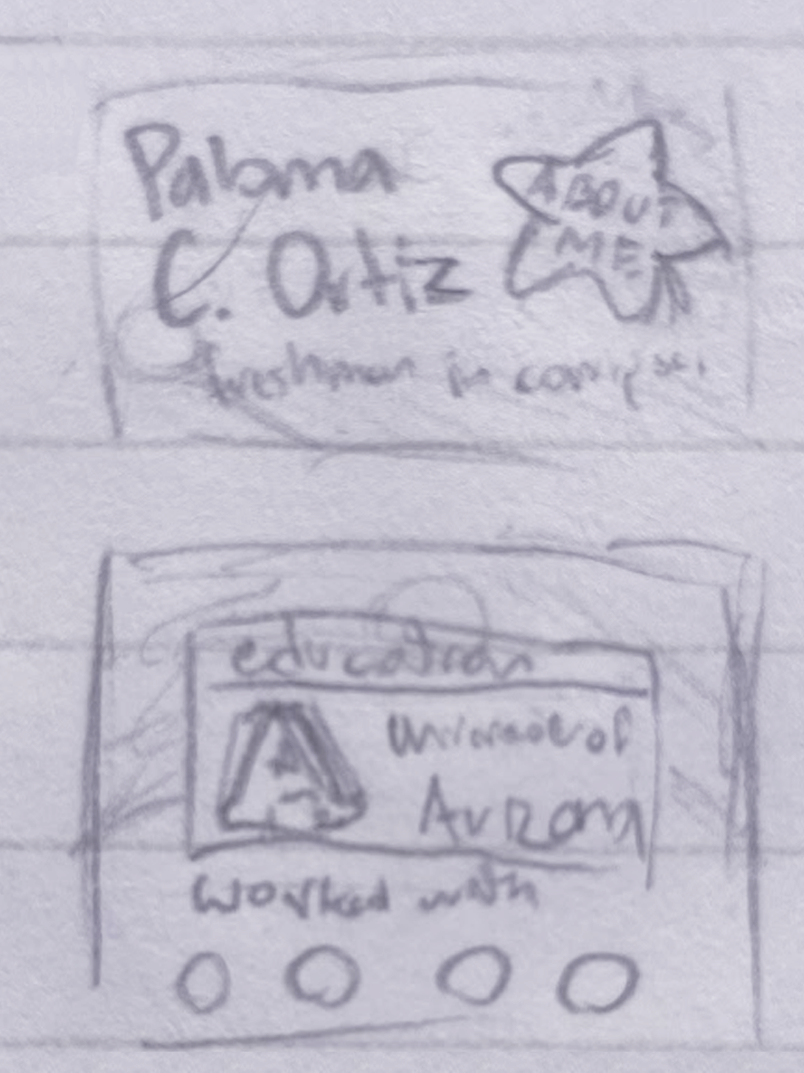 Paloma
C. Ortiz
ABOUT
ME
freshman in comp sci
education
A
University of
Arizona
Worked with